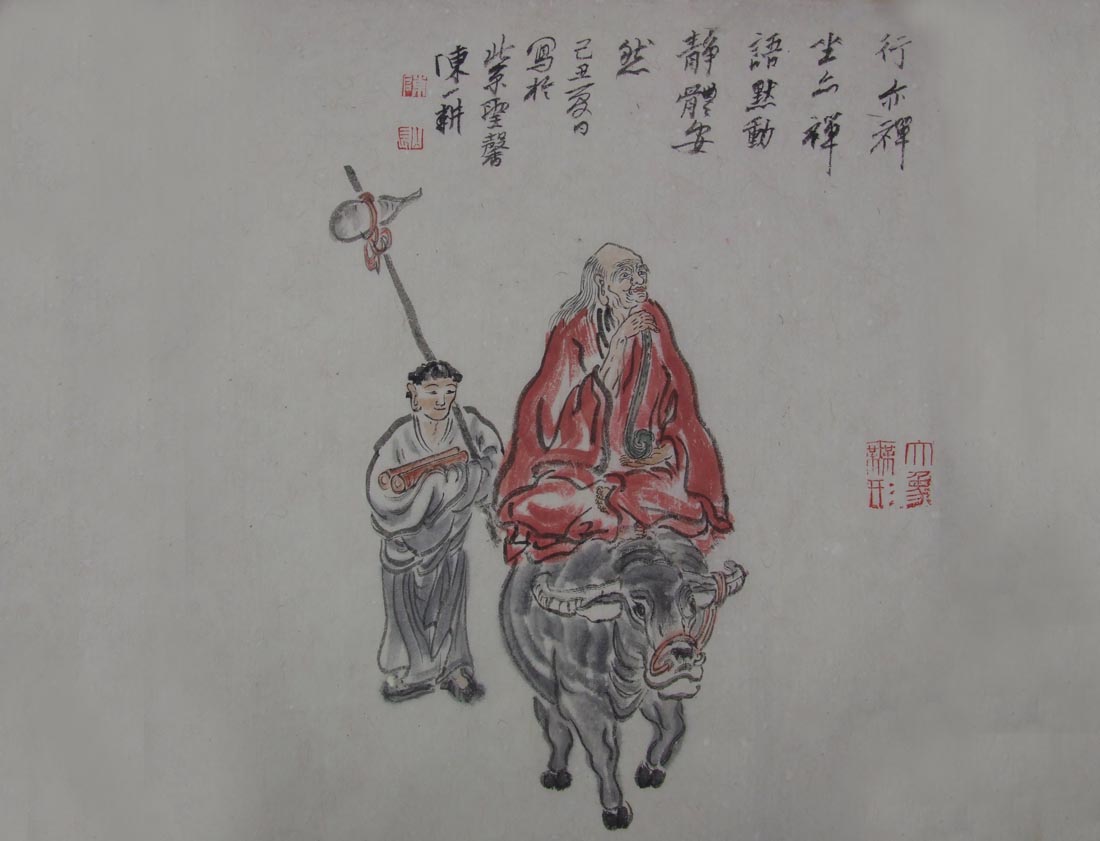 行亦禪
坐亦禪
語默動
靜體安
然
己丑夏日
寫於
紫聖馨
陳一耕
大象無形